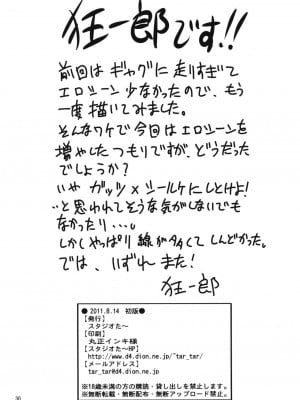 狂一郎です!!
前回は ギャグに 走りすぎて
エロシーン 少なかったので、もう
一度 描いてみました。
そんなワケで 今回は エロシーンを
増やした つもりですが、どうだった
でしょうか?
いや ガッツ×シールケにしとけよ!
…と 思われてそうな 気がしないでも
なかったり…。
しかし やっぱり 線が多くて しんどかった。
では、いずれ また!
狂一郎
● 2011.8.14 初版●
【発行】
スタジオた〜
【印刷】
丸正インキ様
【スタジオた〜HP】
http://www.d4.dion.ne.jp/~tar_tar/
【メールアドレス】
tar_tar@d4.dion.ne.jp
※18歳未満の方の購読・貸し出しを禁止します。
※無断転載・無断配布・無断アップロード禁止